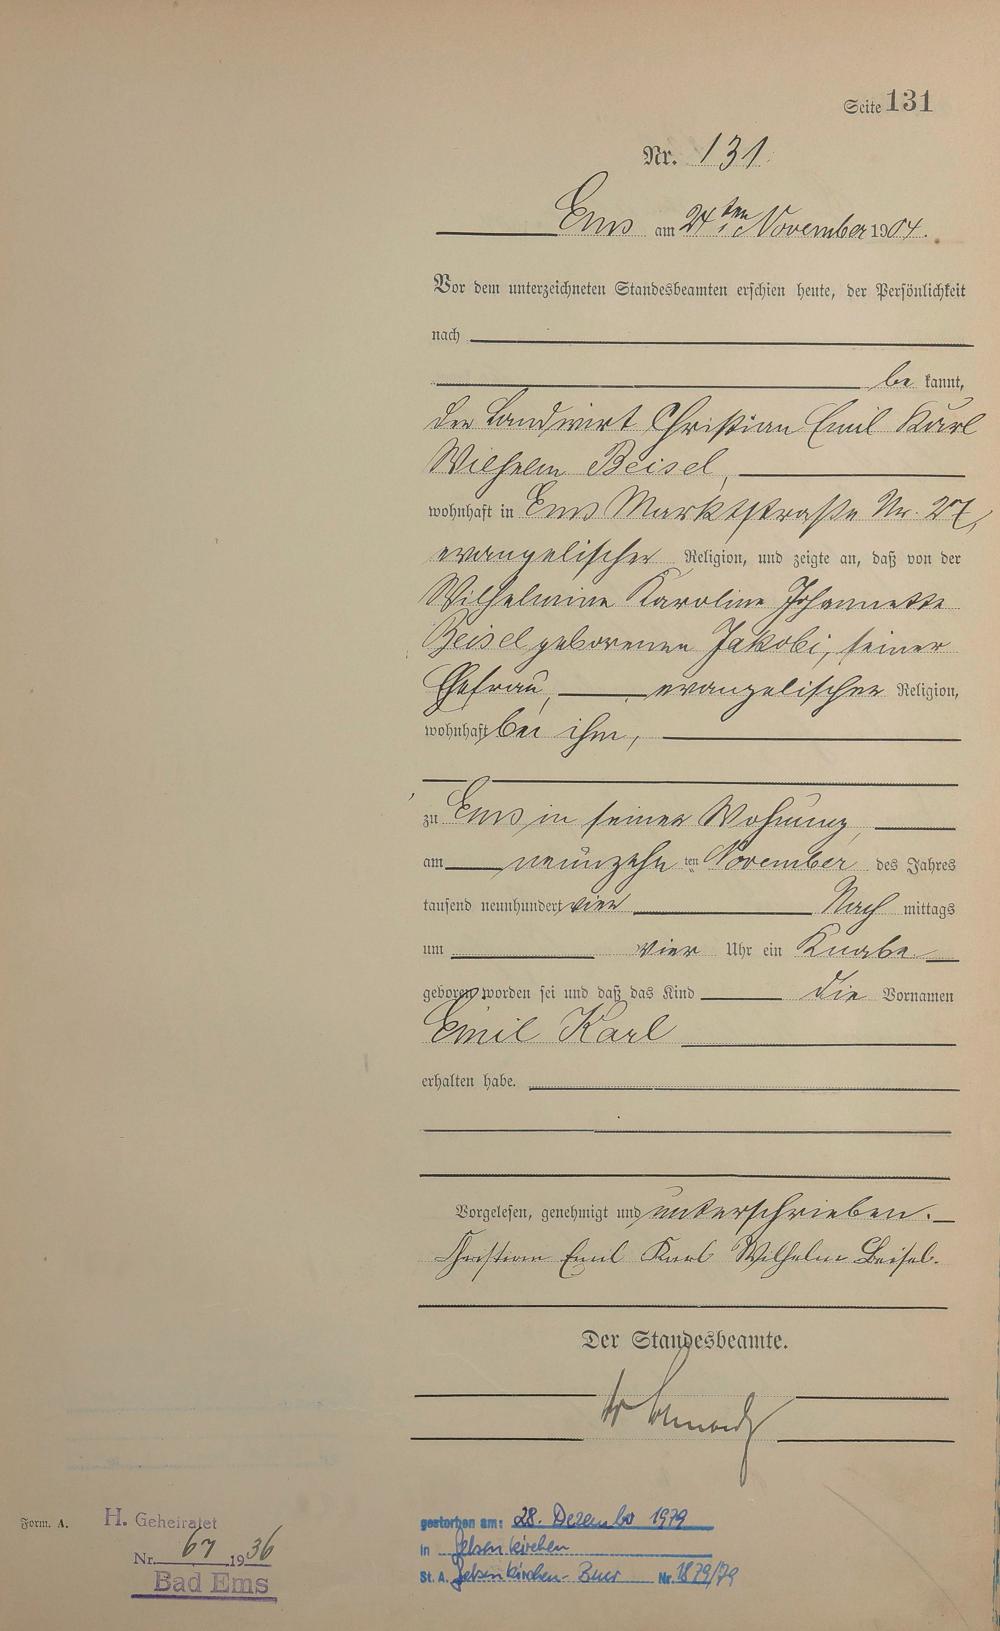 Seite 131
Nr. 131
Ems am 24ten November 1904.
Vor dem unterzeichneten Standesbeamten erschien heute, der Persönlichkeit
nach
be kannt,
der Landwirt Christian Emil Karl
Wilhelm Beisel,
wohnhaft in Ems Marktstraße Nr. 27,
evangelischer Religion, und zeigte an, daß von der
Wilhelmine Karoline Johannette
Beisel geborenen Jakobi, seiner
Ehefrau, evangelischer Religion,
wohnhaft bei ihm,
zu Ems in seiner Wohnung,
am neunzehn ten November des Jahres
tausend neunhundert vier Nach mittags
um vier Uhr ein Knabe
geboren worden sei und daß das Kind die Vornamen
Emil Karl
erhalten habe.
Vorgelesen, genehmigt und unterschrieben.
Christian Emil Karl Wilhelm Beisel.
Der Standesbeamte.
Form. A.
H. Geheiratet
Nr. 67 1936
Bad Ems
gestorben am: 28. Dezember 1979
in Gelsenkirchen
St. A. Gelsenkirchen-Buer Nr. 1879/79